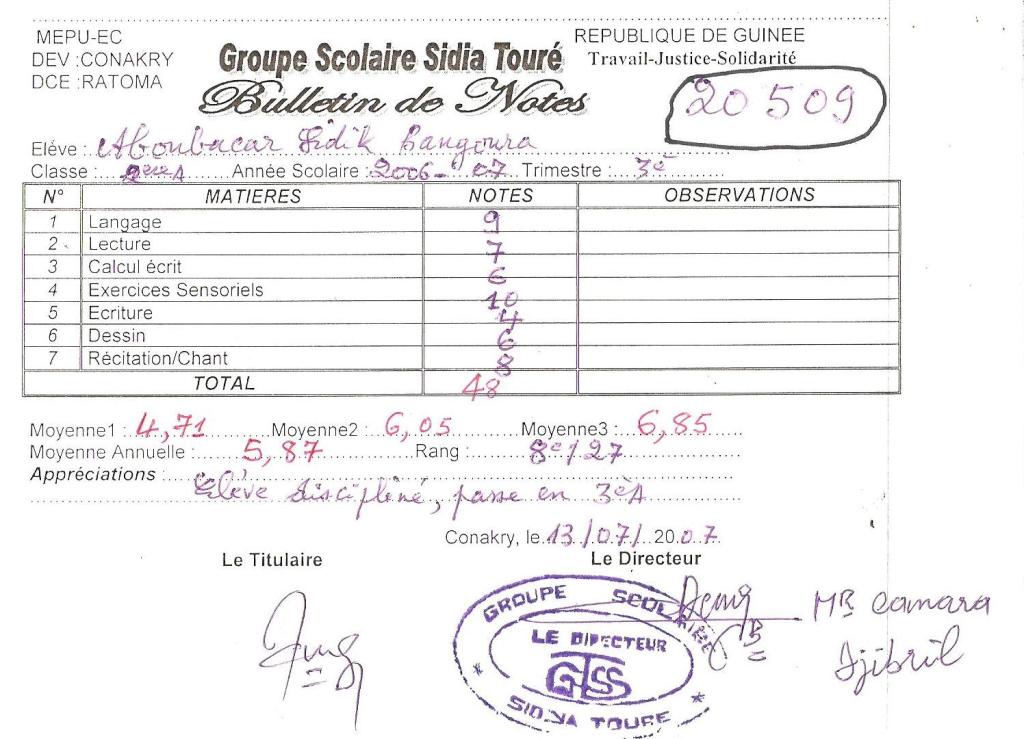 MEPU-EC
DEV :CONAKRY
DCE :RATOMA
REPUBLIQUE DE GUINEE
Travail-Justice-Solidarité
Groupe Scolaire Sidia Touré
Bulletin de Notes
20 509
Elève : Aboubacar Sidik Bangoura
Classe : 2èmeA Année Scolaire : 2006-07 Trimestre : 3è
N° MATIERES NOTES OBSERVATIONS
1 Langage 9
2 Lecture 7
3 Calcul écrit 6
4 Exercices Sensoriels 10
5 Ecriture 4
6 Dessin 6
7 Récitation/Chant 8
TOTAL 48
Moyenne1 : 4,71 Moyenne2 : 6,05 Moyenne3 : 6,85
Moyenne Annuelle : 5,87 Rang : 8e/27
Appréciations :
Elève discipliné, passe en 3èA
Conakry, le 13/07/ 2007
Le Titulaire Le Directeur
GROUPE SCOLAIRE
LE DIRECTEUR
GSTS
SIDYA TOURE
MR Camara
Djibril